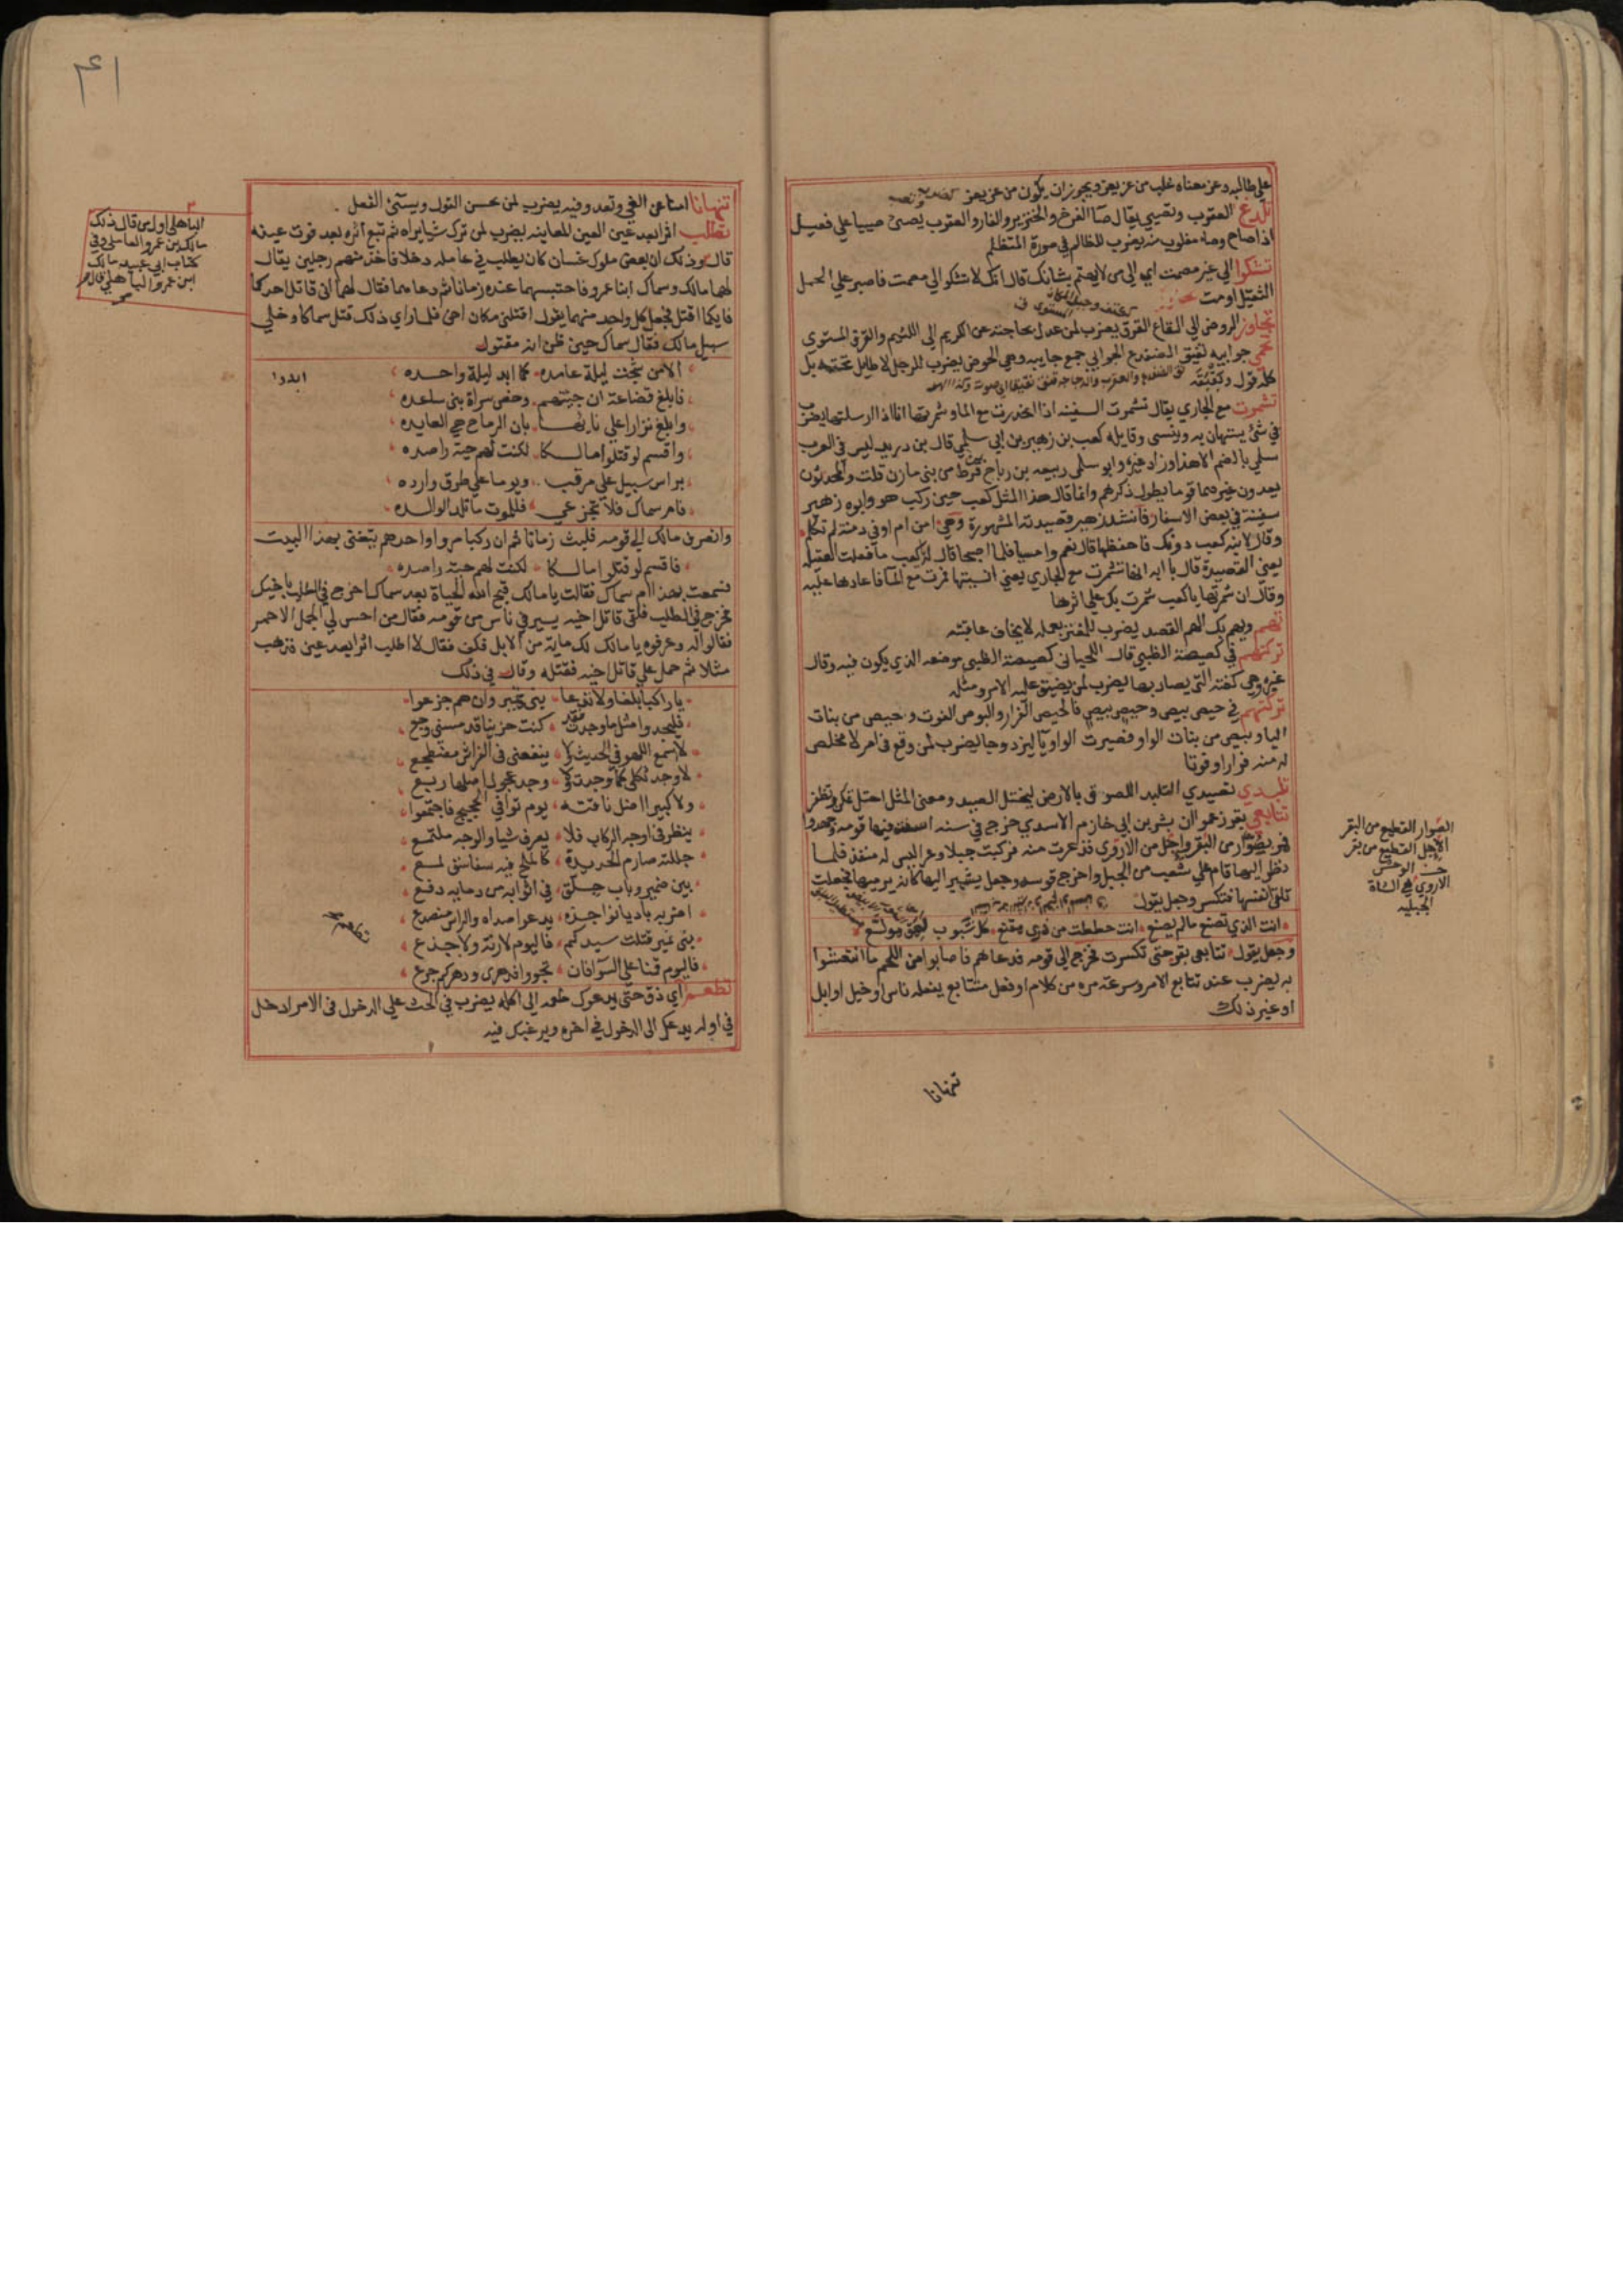 على طالبه وعز معناه غلب من عز يعز ويجوز ان يكون من عز يعز
تلدغ العقرب وتصيي يقال صأ الفرخ والخنزير والفار والعقرب يصئ صييا على فعيل
اذا صاح وصاء مقلوب منه يضرب للظالم في صورة المتظلم
تشكوا الى غير مصمت اي الى من لا يهتم بشانك قال انك لا تشكو الى مصمت فاصبر على الحمل
الثقيل او مت
تجاوز الروض الى القاع القرق يضرب لمن عدل بحاجته عن الكريم الى اللئيم والقرق المستوى
تحمي جوابيه نقيق الضفدع الجوابي جمع جابيه وهي الحوض يضرب للرجل لا طايل تحته بل
كله قول وبقبقة
تشمرت مع الجاري يقال تشمرت السفينه اذا انحدرت مع الما وشمرتها انا اذا ارسلتها يضرب
في شئ يستهان به وينسى وقايله كعب بن زهير بن ابي سلمى قال بن دريد ليس في العرب
سلمى بالضم الا هذا وزاد غيره وابو سلمى ربيعه بن رباح بن قرط من بني مازن قلت والمحدثون
يعدون غيرهما قوما يطول ذكرهم وانما قال هذا المثل كعب حين ركب هو وابوه زهير
سفينة في بعض الاسفار فانشد زهير قصيدته المشهورة وهي امن ام اوفى دمنة لم تكلم
وقال لابنه كعب دونك فاحفظها قال نعم وامسيا فلما اصبحا قال له يا كعب ما فعلت العقيله
يعني القصيدة قال يا ابه انها تشمرت مع الجاري يعني انسيتها فمرت مع الما فاعادها عليه
وقال ان شمرتها يا كعب شمرت بك على اثرها
تهم ويهم بك الهم القصد يضرب للمغتر بعمله لا يخاف عاقبته
تركتهم في كصيصة الظبي قال اللحياني كصيصة الظبي موضعه الذي يكون فيه وقال
غيره وهي كفته التي يصاد بها يضرب لمن يضيق عليه الامر ومثله
تركتهم في حيص بيص وحيص بيص فالحيص الفرار والبوص الفوت وحيص من بنات
اليا وبيص من بنات الواو فصيرت الواو يا ليزدوجا يضرب لمن وقع في امر لا مخلص
له منه فرارا وفوتا
تلبدي تصيدي التلبد اللصوق بالارض ليختل الصيد ومعنى المثل احتل تمكن وتظفر
تتابعي بقر زعموا ان بشر بن ابي خازم الاسدي خرج في سنه اسنت فيها قومه وجهدوا
فمر بصوار من البقر واجل من الاروى فذعرت منه فركبت جبلا وعرا ليس له منفذ فلما
نظر اليها قام على شعب من الجبل واخرج قوسه وجعل يشير اليها كانه يرميها فجعلت
تلقي انفسها فتكسر وجعل يقول
انت الذي تصنع ما لم يصنع انت حططت من ذرى مقنع كل شبوب لهق مولع
وجعل يقول تتابعي بقر حتى تكسرت فخرج الى قومه فدعاهم فاصابوا من اللحم ما انتعشوا
به يضرب عند تتابع الامر وسرعة مره من كلام او فعل متتابع يفعله ناس او خيل او ابل
او غير ذلك
تنهانا
الصوار القطيع من البقر
الاجل القطيع من بقر
الوحش
الاروى هي الشاة
الجبليه
٤١
تنهانا امنا عن الغي وتغدو فيه يضرب لمن يحسن القول ويسئ الفعل
تطلب اثرا بعد عين العين المعاينه يضرب لمن ترك شيا يراه ثم تبع اثره بعد فوت عينه
قال وذلك ان بعض ملوك غسان كان يطلب في عامله دخلا فاخذ منهم رجلين يقال
لهما مالك وسماك ابنا عمرو فاحتبسهما عنده زمانا ثم دعاهما فقال لهما اني قاتل احدكما
فايكما اقتل فجعل كل واحد منهما يقول اقتلني مكان اخي فلما راى ذلك قتل سماكا وخلى
سبيل مالك فقال سماك حين ظن انه مقتول
الا من شجت ليلة عامده كما ابد ليلة واحده
ابدوا
فابلغ قضاعة ان جيتهم وخص سراة بني ساعده
وابلغ نزارا على نايها بان الرماح هي العايده
واقسم لو قتلوا مالكا لكنت لهم حية راصده
براس سبيل على مرقب ويوما على طرق وارده
فام سماك فلا تجزعي فللموت ما تلد الوالده
وانصرف مالك الى قومه فلبث زمانا ثم ان ركبا مروا واحدهم يتغنى بهذا البيت
فاقسم لو قتلوا مالكا لكنت لهم حية راصده
فسمعت بهذا ام سماك فقالت يا مالك قبح الله الحياة بعد سماك اخرج في الطلب باخيك
فخرج في الطلب فلقى قاتل اخيه يسير في ناس من قومه فقال من احس لي الجمل الاحمر
فقالوا له وعرفوه يا مالك لك ماية من الابل فكف فقال لا اطلب اثرا بعد عين فذهب
مثلا ثم حمل على قاتل اخيه فقتله وقال في ذلك
يا راكبا بلغا ولا تدعا بني قمير وان هم جزعوا
فليجدوا مثل ما وجدت فقد كنت حزينا قد مسني وجع
لا اسمع اللهو في الحديث ولا ينفعني في الفراش مضطجع
لا وجد ثكلى كما وجدت ولا وجد عجول اضلها ربع
ولا كبير اضل ناقته يوم توافى الحجيج فاجتمعوا
ينظر في اوجه الركاب فلا يعرف شيا والوجه ملتمع
جللته صارم الحديدة كالملح فيه سفاسق لمع
بين ضمير وباب جلق في اثوابه من دمايه دفع
اضربه باديا نواجذه يدعو صداه والراس منصدع
بني نمير قتلت سيدكم فاليوم لا رنة ولا جذع
فاليوم قمنا على السوا فان تجروا فدهري ودهركم جرع
تطعم
تطعم اي ذق حتى يدعوك طعمه الى اكله يضرب في الحث على الدخول في الامر ادخل
في اوله يدعك الى الدخول في اخره ويرغبك فيه
الباهلى اول من قال ذلك
مالك بن عمرو العاملي وفي
كتاب ابي عبيد مالك
ابن عمرو الباهلي قال